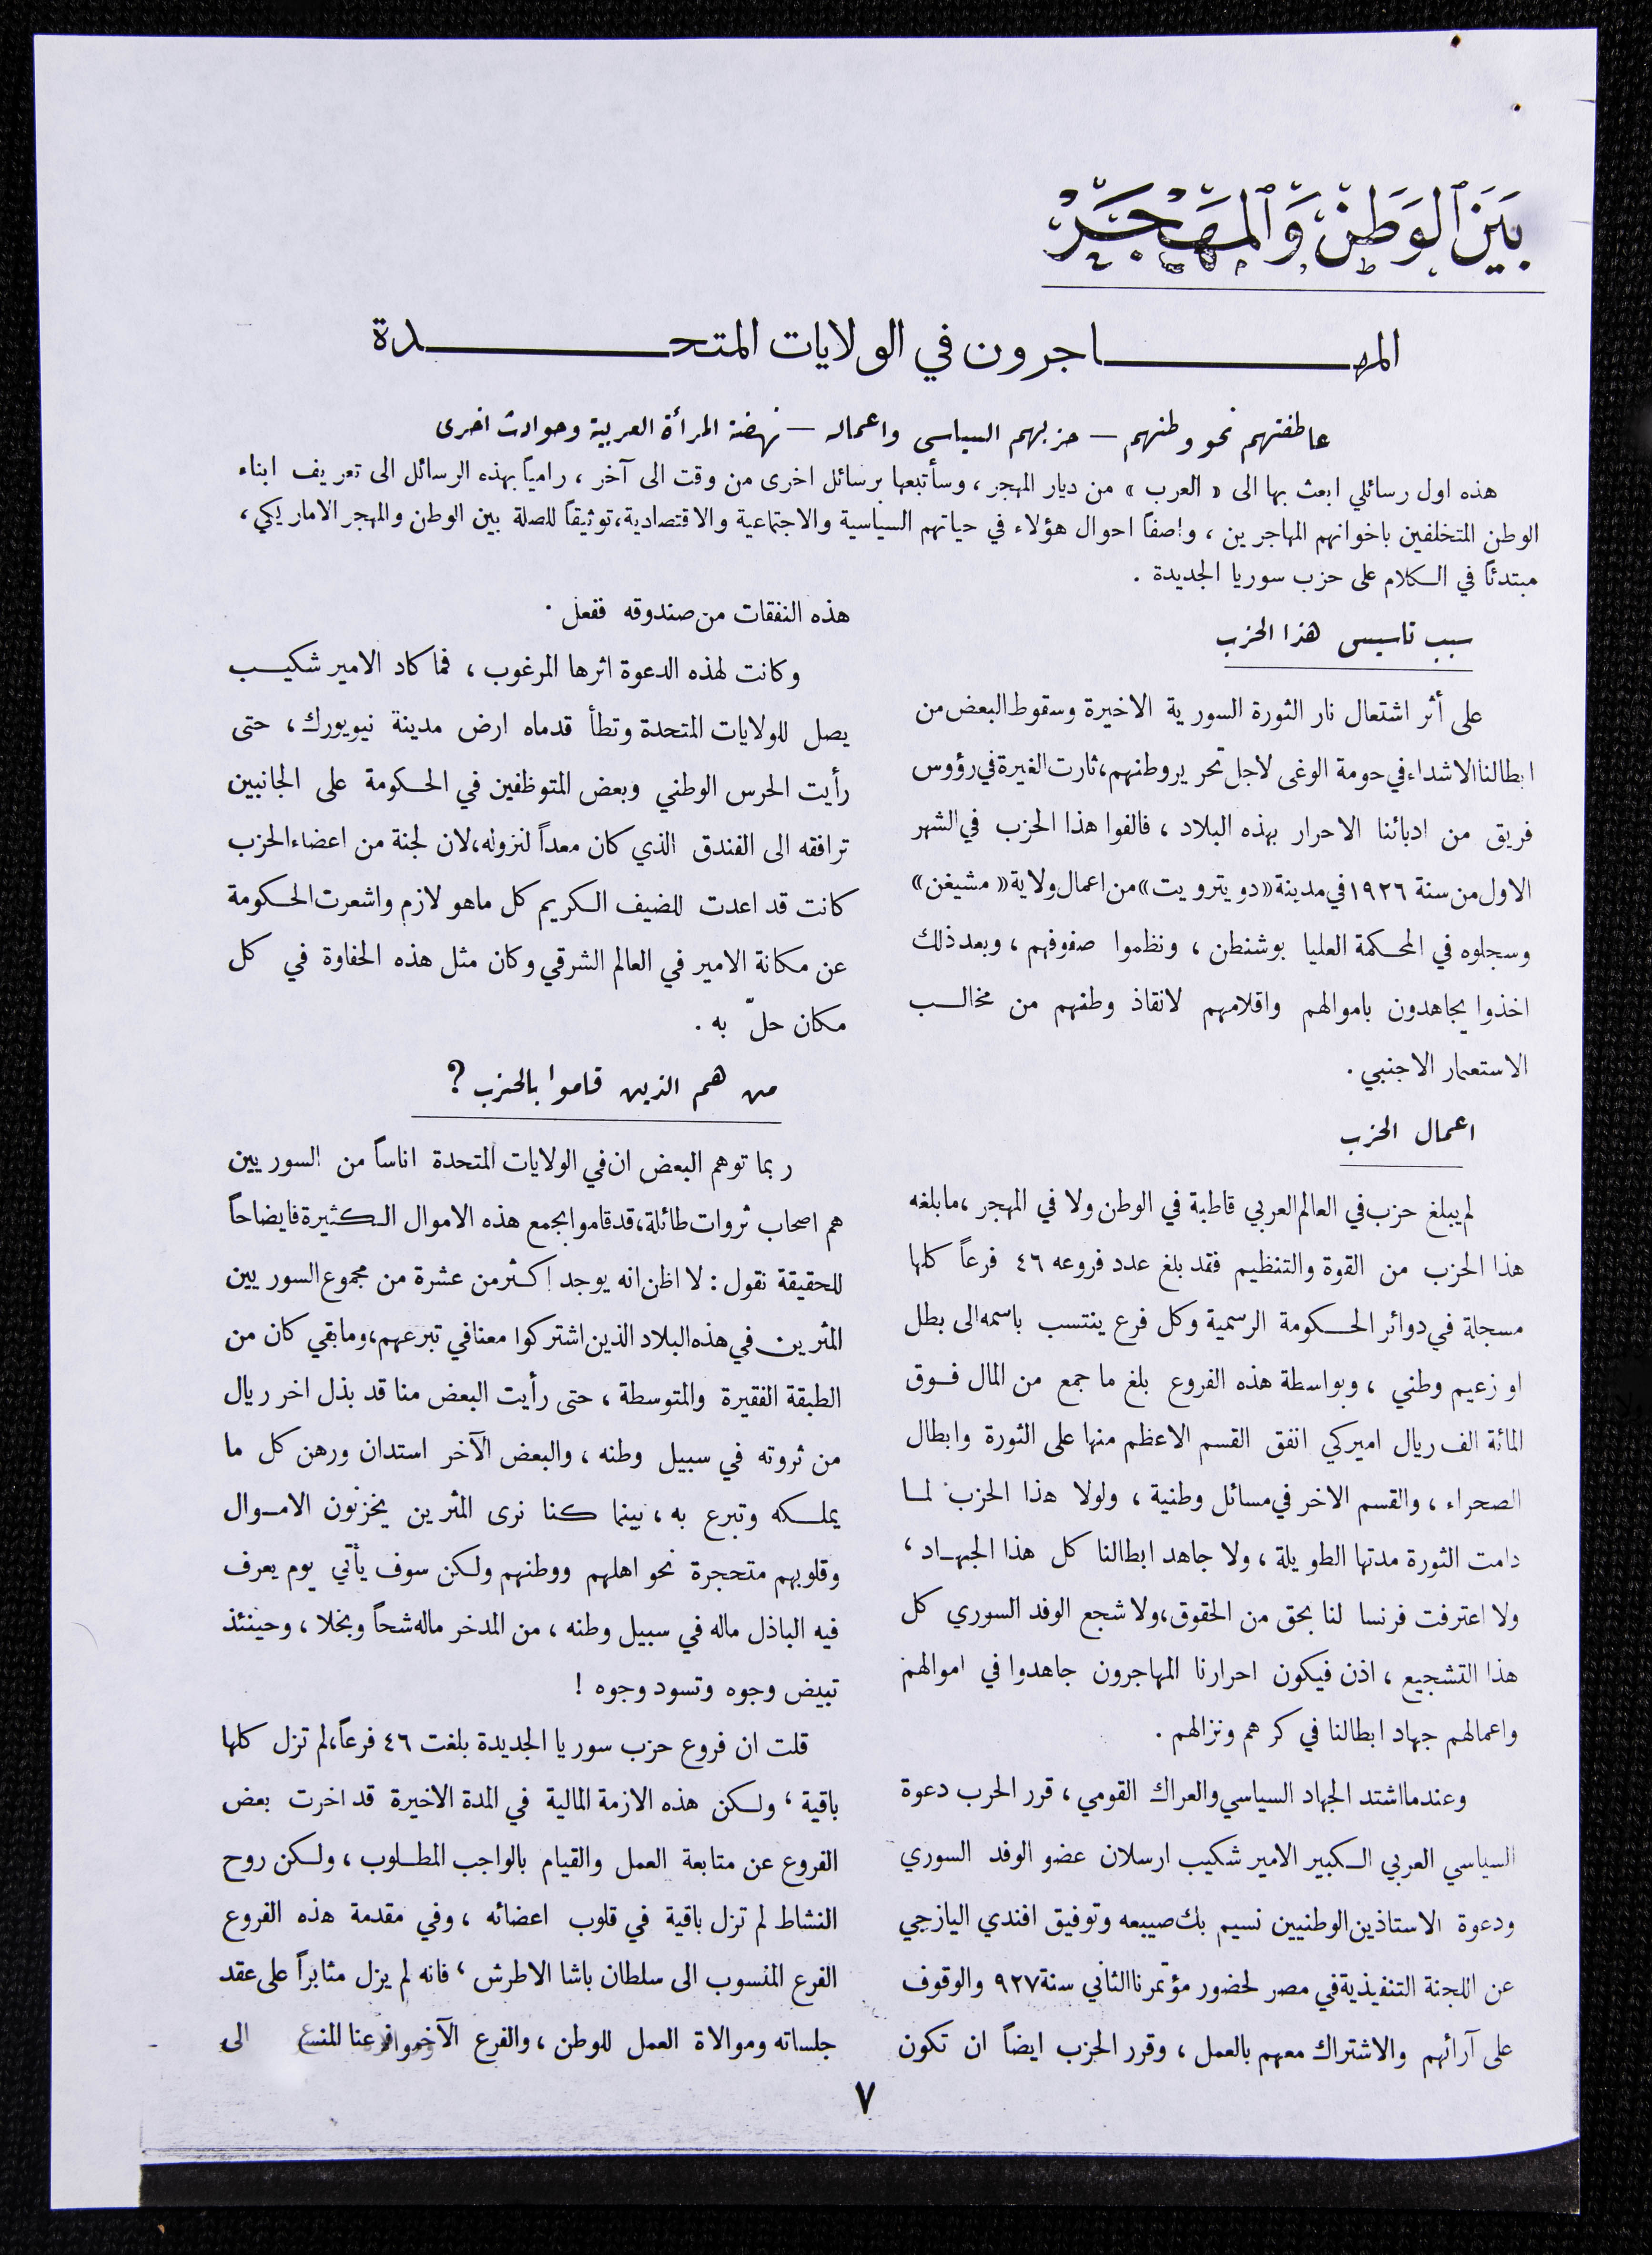 بَيَن ٱلوَطَنْ وَٱلمَهْجَرْ
المهاجرون في الولايات المتحدة
عاطفتهم نحو وطنهم — حزبهم السياسى واعماله — نهضة المرأة العربية وحوادث اخرى
هذه اول رسائلي ابعث بها الى « العرب » من ديار المهجر ، وسأتبعها برسائل اخرى من وقت الى آخر ، رامياً بهذه الرسائل الى تعريف ابناء
الوطن المتخلفين باخوانهم المهاجرين ، واصفاً احوال هؤلاء في حياتهم السياسية والاجتماعية والاقتصادية، توثيقاً للصلة بين الوطن والمهجر الاماريكي ،
مبتدئاً في الكلام على حزب سوريا الجديدة .
سبب تاسيس هذا الحزب
على أثر اشتعال نار الثورة السورية الاخيرة وسقوط البعض من
ابطالنا الاشداء في حومة الوغى لاجل تحرير وطنهم، ثارت الغيرة في رؤوس
فريق من ادبائنا الاحرار بهذه البلاد ، فالفوا هذا الحزب في الشهر
الاول من سنة ١٩٢٦ في مدينة « دويترويت » من اعمال ولاية « مشيغن »
وسجلوه في المحكمة العليا بوشنطن ، ونظموا صفوفهم ، وبعد ذلك
اخذوا يجاهدون باموالهم واقلامهم لانقاذ وطنهم من مخالب
الاستعمار الاجنبي .
اعمال الحزب
لم يبلغ حزب في العالم العربي قاطبة في الوطن ولا في المهجر ، ما بلغه
هذا الحزب من القوة والتنظيم فقد بلغ عدد فروعه ٤٦ فرعاً كلها
مسجلة في دوائر الحكومة الرسمية وكل فرع ينتسب باسمه الى بطل
او زعيم وطني ، وبواسطة هذه الفروع بلغ ما جمع من المال فوق
المائة الف ريال اميركي انفق القسم الاعظم منها على الثورة وابطال
الصحراء ، والقسم الاخر في مسائل وطنية ، ولولا هذا الحزب لما
دامت الثورة مدتها الطويلة ، ولا جاهد ابطالنا كل هذا الجهاد ،
ولا اعترفت فرنسا لنا بحق من الحقوق، ولا شجع الوفد السوري كل
هذا التشجيع ، اذن فيكون احرارنا المهاجرون جاهدوا في اموالهم
واعمالهم جهاد ابطالنا في كرهم ونزالهم .
وعندما اشتد الجهاد السياسي والعراك القومي ، قرر الحرب دعوة
السياسي العربي الكبير الامير شكيب ارسلان عضو الوفد السوري
ودعوة الاستاذين الوطنيين نسيم بك صيبعه وتوفيق افندي اليازجي
عن اللجنة التنفيذية في مصر لحضور مؤتمرنا الثاني سنة ٩٢٧ والوقوف
على آرائهم والاشتراك معهم بالعمل ، وقرر الحزب ايضاً ان تكون
هذه النفقات من صندوقه ففعل .
وكانت لهذه الدعوة اثرها المرغوب ، فما كاد الامير شكيب
يصل للولايات المتحدة وتطأ قدماه ارض مدينة نيويورك ، حتى
رأيت الحرس الوطني وبعض المتوظفين في الحكومة على الجانبين
ترافقه الى الفندق الذي كان معداً لنزوله، لان لجنة من اعضاء الحزب
كانت قد اعدت للضيف الكريم كل ماهو لازم واشعرت الحكومة
عن مكانة الامير في العالم الشرقي وكان مثل هذه الحفاوة في كل
مكان حلّ به .
من هم الذين قاموا بالحزب ؟
ربما توهم البعض ان في الولايات المتحدة اناساً من السوريين
هم اصحاب ثروات طائلة، قد قاموا بجمع هذه الاموال الكثيرة فايضاحاً
للحقيقة نقول : لا اظن انه يوجد اكثر من عشرة من مجموع السوريين
المثرين في هذه البلاد الذين اشتركوا معنا في تبرعهم، وما بقي كان من
الطبقة الفقيرة والمتوسطة ، حتى رأيت البعض منا قد بذل اخر ريال
من ثروته في سبيل وطنه ، والبعض الآخر استدان ورهن كل ما
يملكه وتبرع به ، بينما كنا نرى المثرين يخزنون الاموال
وقلوبهم متحجرة نحو اهلهم ووطنهم ولكن سوف يأتي يوم يعرف
فيه الباذل ماله في سبيل وطنه ، من المدخر ماله شحاً وبخلا ، وحينئذ
تبيض وجوه وتسود وجوه !
قلت ان فروع حزب سوريا الجديدة بلغت ٤٦ فرعاً، لم تزل كلها
باقية ، ولكن هذه الازمة المالية في المدة الاخيرة قد اخرت بعض
الفروع عن متابعة العمل والقيام بالواجب المطلوب ، ولكن روح
النشاط لم تزل باقية في قلوب اعضائه ، وفي مقدمة هذه الفروع
الفرع المنسوب الى سلطان باشا الاطرش ، فانه لم يزل مثابراً على عقد
جلساته وموالاة العمل للوطن ، والفرع الآخر الى
٧